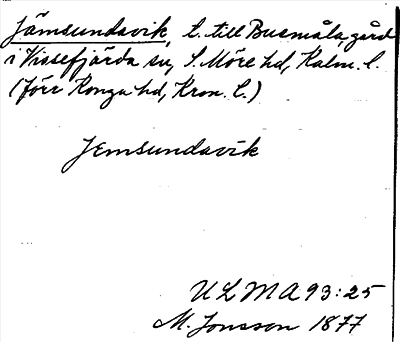 Jämsundavik, t. till Busmåla gård
i Vissefjärda sn, S. Möre hd, Kalm. l.
(förr Konga hd, Kron. l.)
Jemsundavik
ULMA 93:25
M. Jonsson 1877